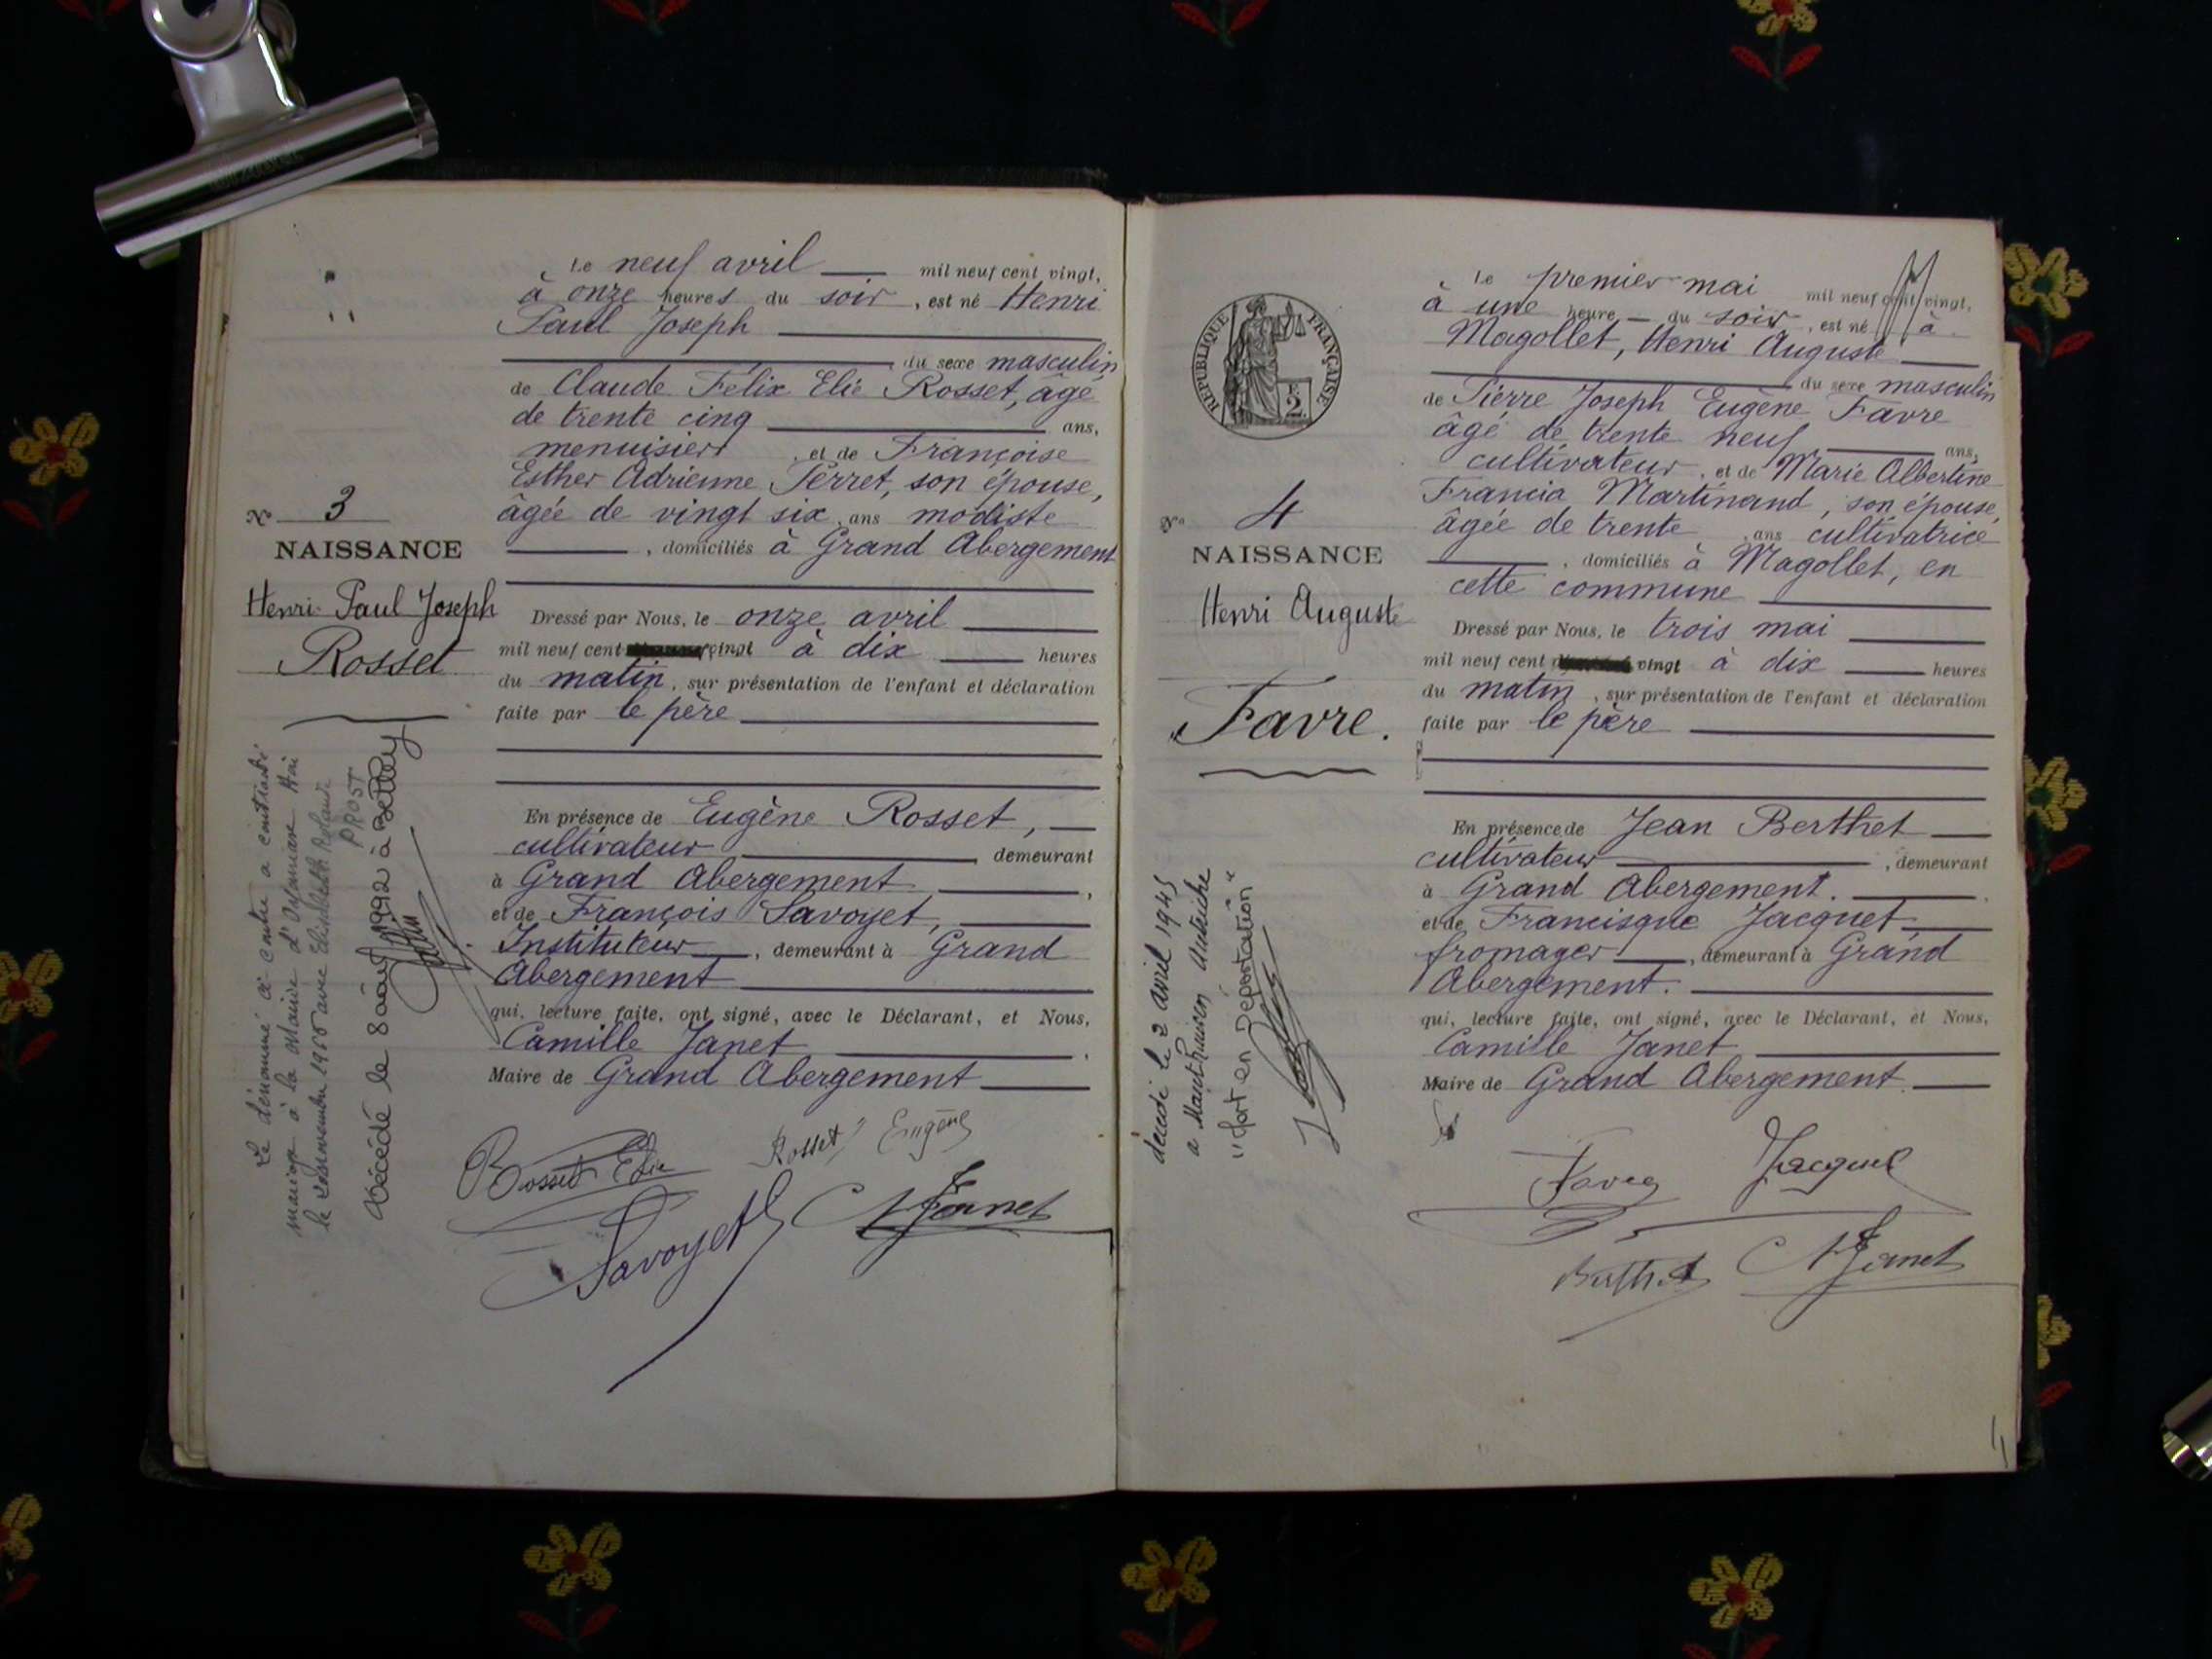 Le neuf avril mil neuf cent vingt,
à onze heures du soir, est né Henri
Paul Joseph
du sexe masculin
de Claude Félix Elie Rosset, âgé
de trente cinq ans,
menuisier et de Françoise
Esther Adrienne Perret, son épouse,
âgée de vingt six ans modiste
, domiciliés à Grand Abergement
N° 3
NAISSANCE
Henri Paul Joseph
Rosset
Dressé par Nous, le onze avril
mil neuf cent vingt à dix heures
du matin, sur présentation de l'enfant et déclaration
faite par le père
En présence de Eugène Rosset,
cultivateur, demeurant
à Grand Abergement,
et de François Savoyet,
Instituteur, demeurant à Grand
Abergement
qui, lecture faite, ont signé, avec le Déclarant, et Nous,
Camille Janet
Maire de Grand Abergement
Le dénommé ci-contre a contracté
mariage à la Mairie d'
le novembre avec Elisabeth
PROST
Décédé le 8 août 1992 à
Rosset Elie Rosset Eugène
Savoyet Janet
RÉPUBLIQUE FRANÇAISE
2
Le premier mai mil neuf cent vingt,
à une heure du soir, est né à
Magollet, Henri Auguste
du sexe masculin
de Pierre Joseph Eugène Favre
âgé de trente neuf ans,
cultivateur, et de Marie Albertine
Francia Martinand, son épouse,
âgée de trente ans cultivatrice
, domiciliés à Magollet, en
cette commune
N° 4
NAISSANCE
Henri Auguste
Favre.
Dressé par Nous, le trois mai
mil neuf cent vingt à dix heures
du matin, sur présentation de l'enfant et déclaration
faite par le père
En présence de Jean Berthet
cultivateur, demeurant
à Grand Abergement.
et de Francisque Jacquet
fromager, demeurant à Grand
Abergement.
qui, lecture faite, ont signé, avec le Déclarant, et Nous,
Camille Janet
Maire de Grand Abergement
décédé le 2 avril 1945
a Mauthausen Autriche
"Mort en Déportation"
Favre Jacquet
Berthet Janet